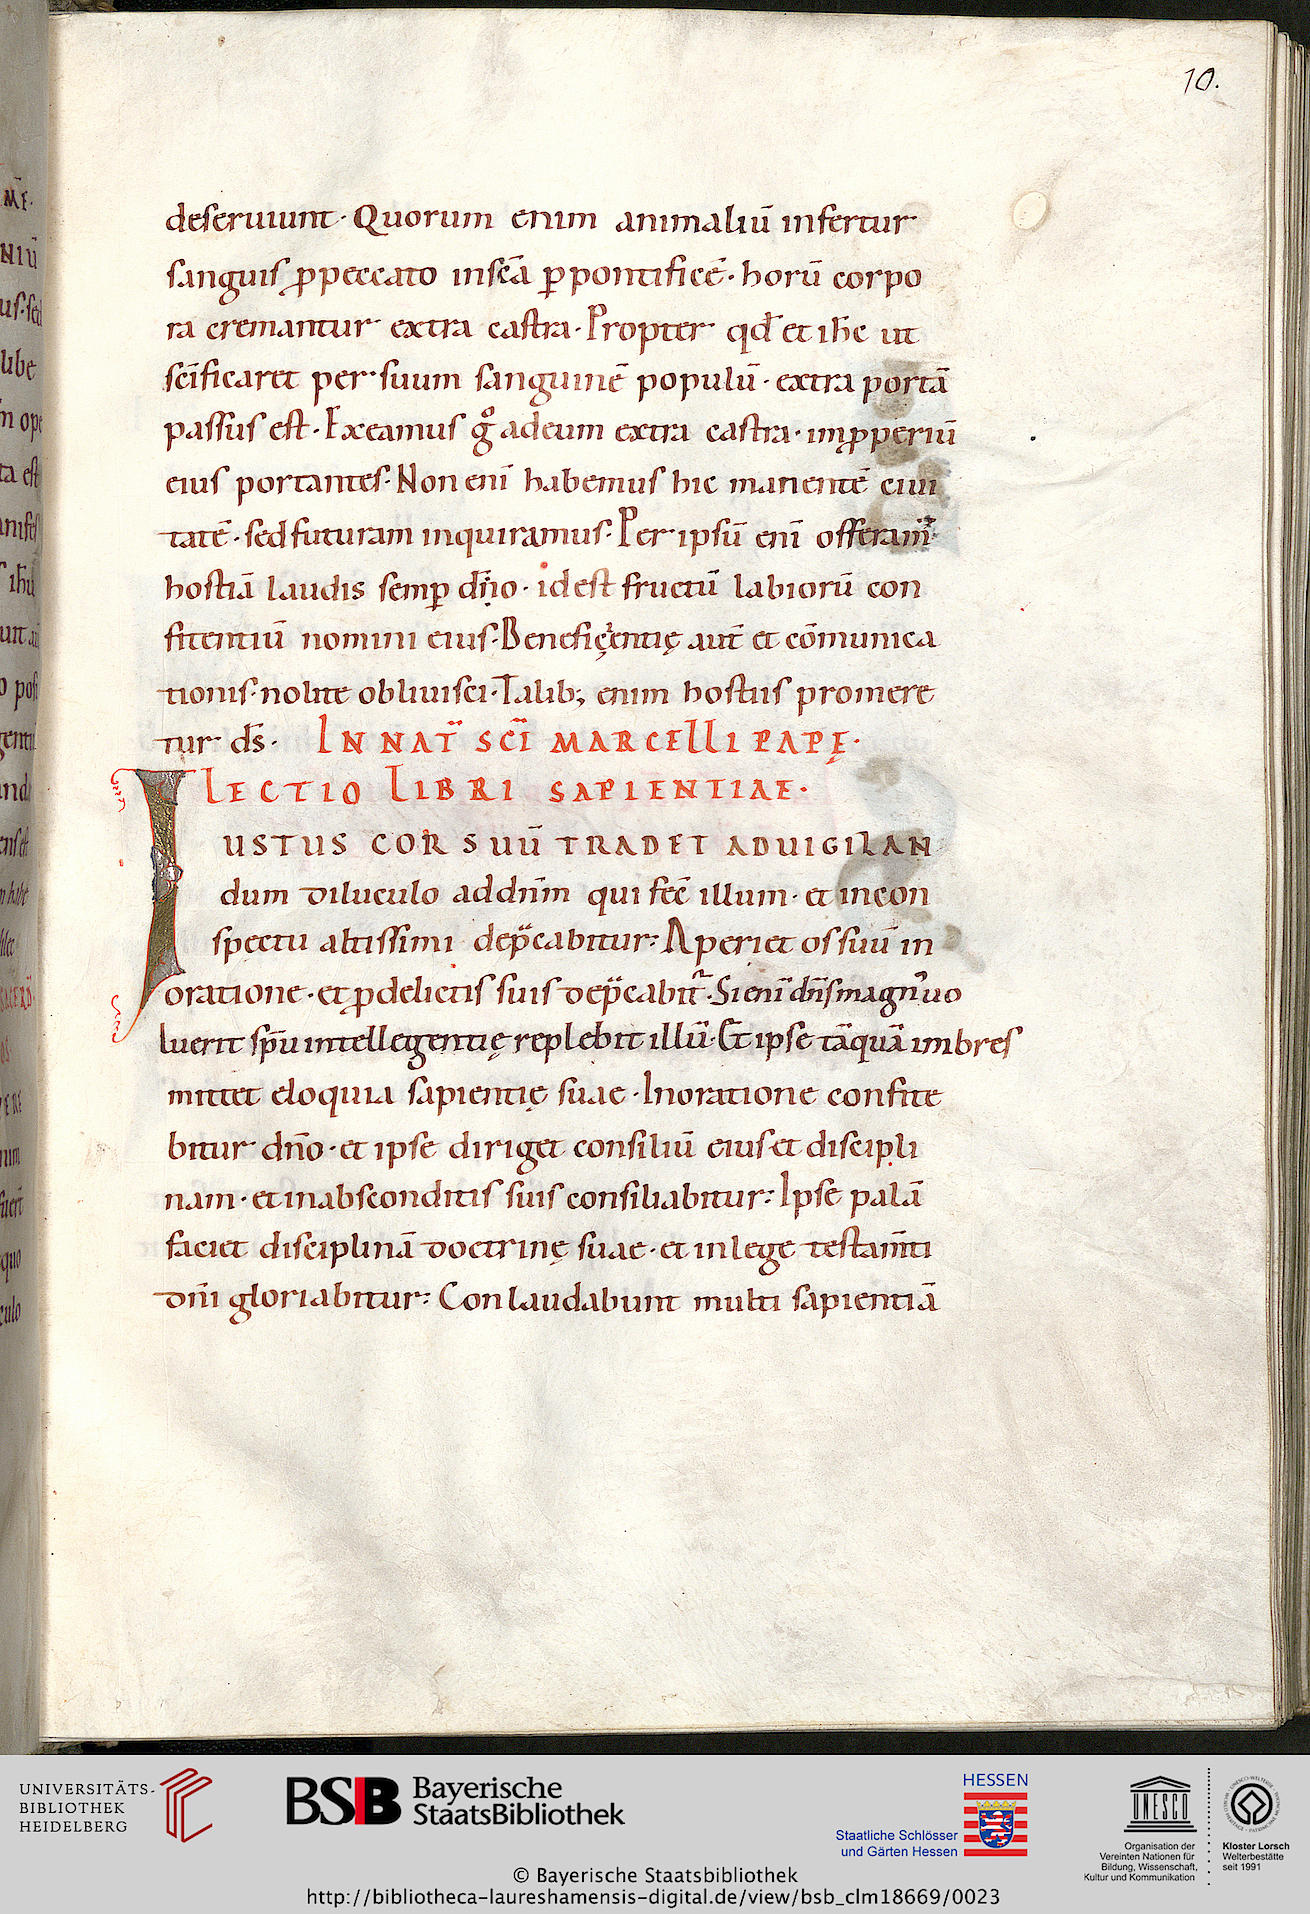 10.
deseruiunt· Quorum enim animaliū infertur
sanguis ꝓpeccato inscā ꝑpontificē· horū corpo
ra cremantur extra castra· Propter qđ et ihc ut
scīficaret per suum sanguinē populū· extra portā
passus est· Exeamus gͦ adeum extra castra· imꝓperiū
eius portantes· Non enī habemus hic manentē ciui
tatē· sed futuram inquiramus· Per ipsū enī offeram̄
hostiā laudis semꝑ dn̄o· idest fructū labiorū con
fitentiū nomini eius· Beneficentię aut̄ et cōmunica
tionis· nolite obliuisci· Talib; enim hostiis promere
tur ds̄· IN NAT̄ SCĪ MARCELLI PAPĘ·
LECTIO LIBRI SAPIENTIAE·
IUSTUS COR SUŪ TRADET ADUIGILAN
dum diluculo addnm̄ qui fec̄ illum· et incon
spectu altissimi dep̄cabitur: Aperiet os suū in
oratione· et ꝓdelictis suis dep̄cabit᷑· Si enī dn̄s magn᾽ uo
luerit spū intellegentię replebit illū· Et ipse tāquā imbres
mittet eloquia sapientię suae· Inoratione confite
bitur dn̄o· et ipse diriget consiliū eius et discipli
nam· et inabsconditis suis consiliabitur: Ipse palā
faciet disciplinā doctrinę suae· et inlege testam̄ti
dn̄i gloriabitur: Conlaudabunt multi sapientiā
UNIVERSITÄTS-
BIBLIOTHEK
HEIDELBERG
BSB Bayerische
StaatsBibliothek
HESSEN
Staatliche Schlösser
und Gärten Hessen
UNESCO
Organisation der
Vereinten Nationen für
Bildung, Wissenschaft,
Kultur und Kommunikation
Kloster Lorsch
Welterbestätte
seit 1991
© Bayerische Staatsbibliothek
http://bibliotheca-laureshamensis-digital.de/view/bsb_clm18669/0023